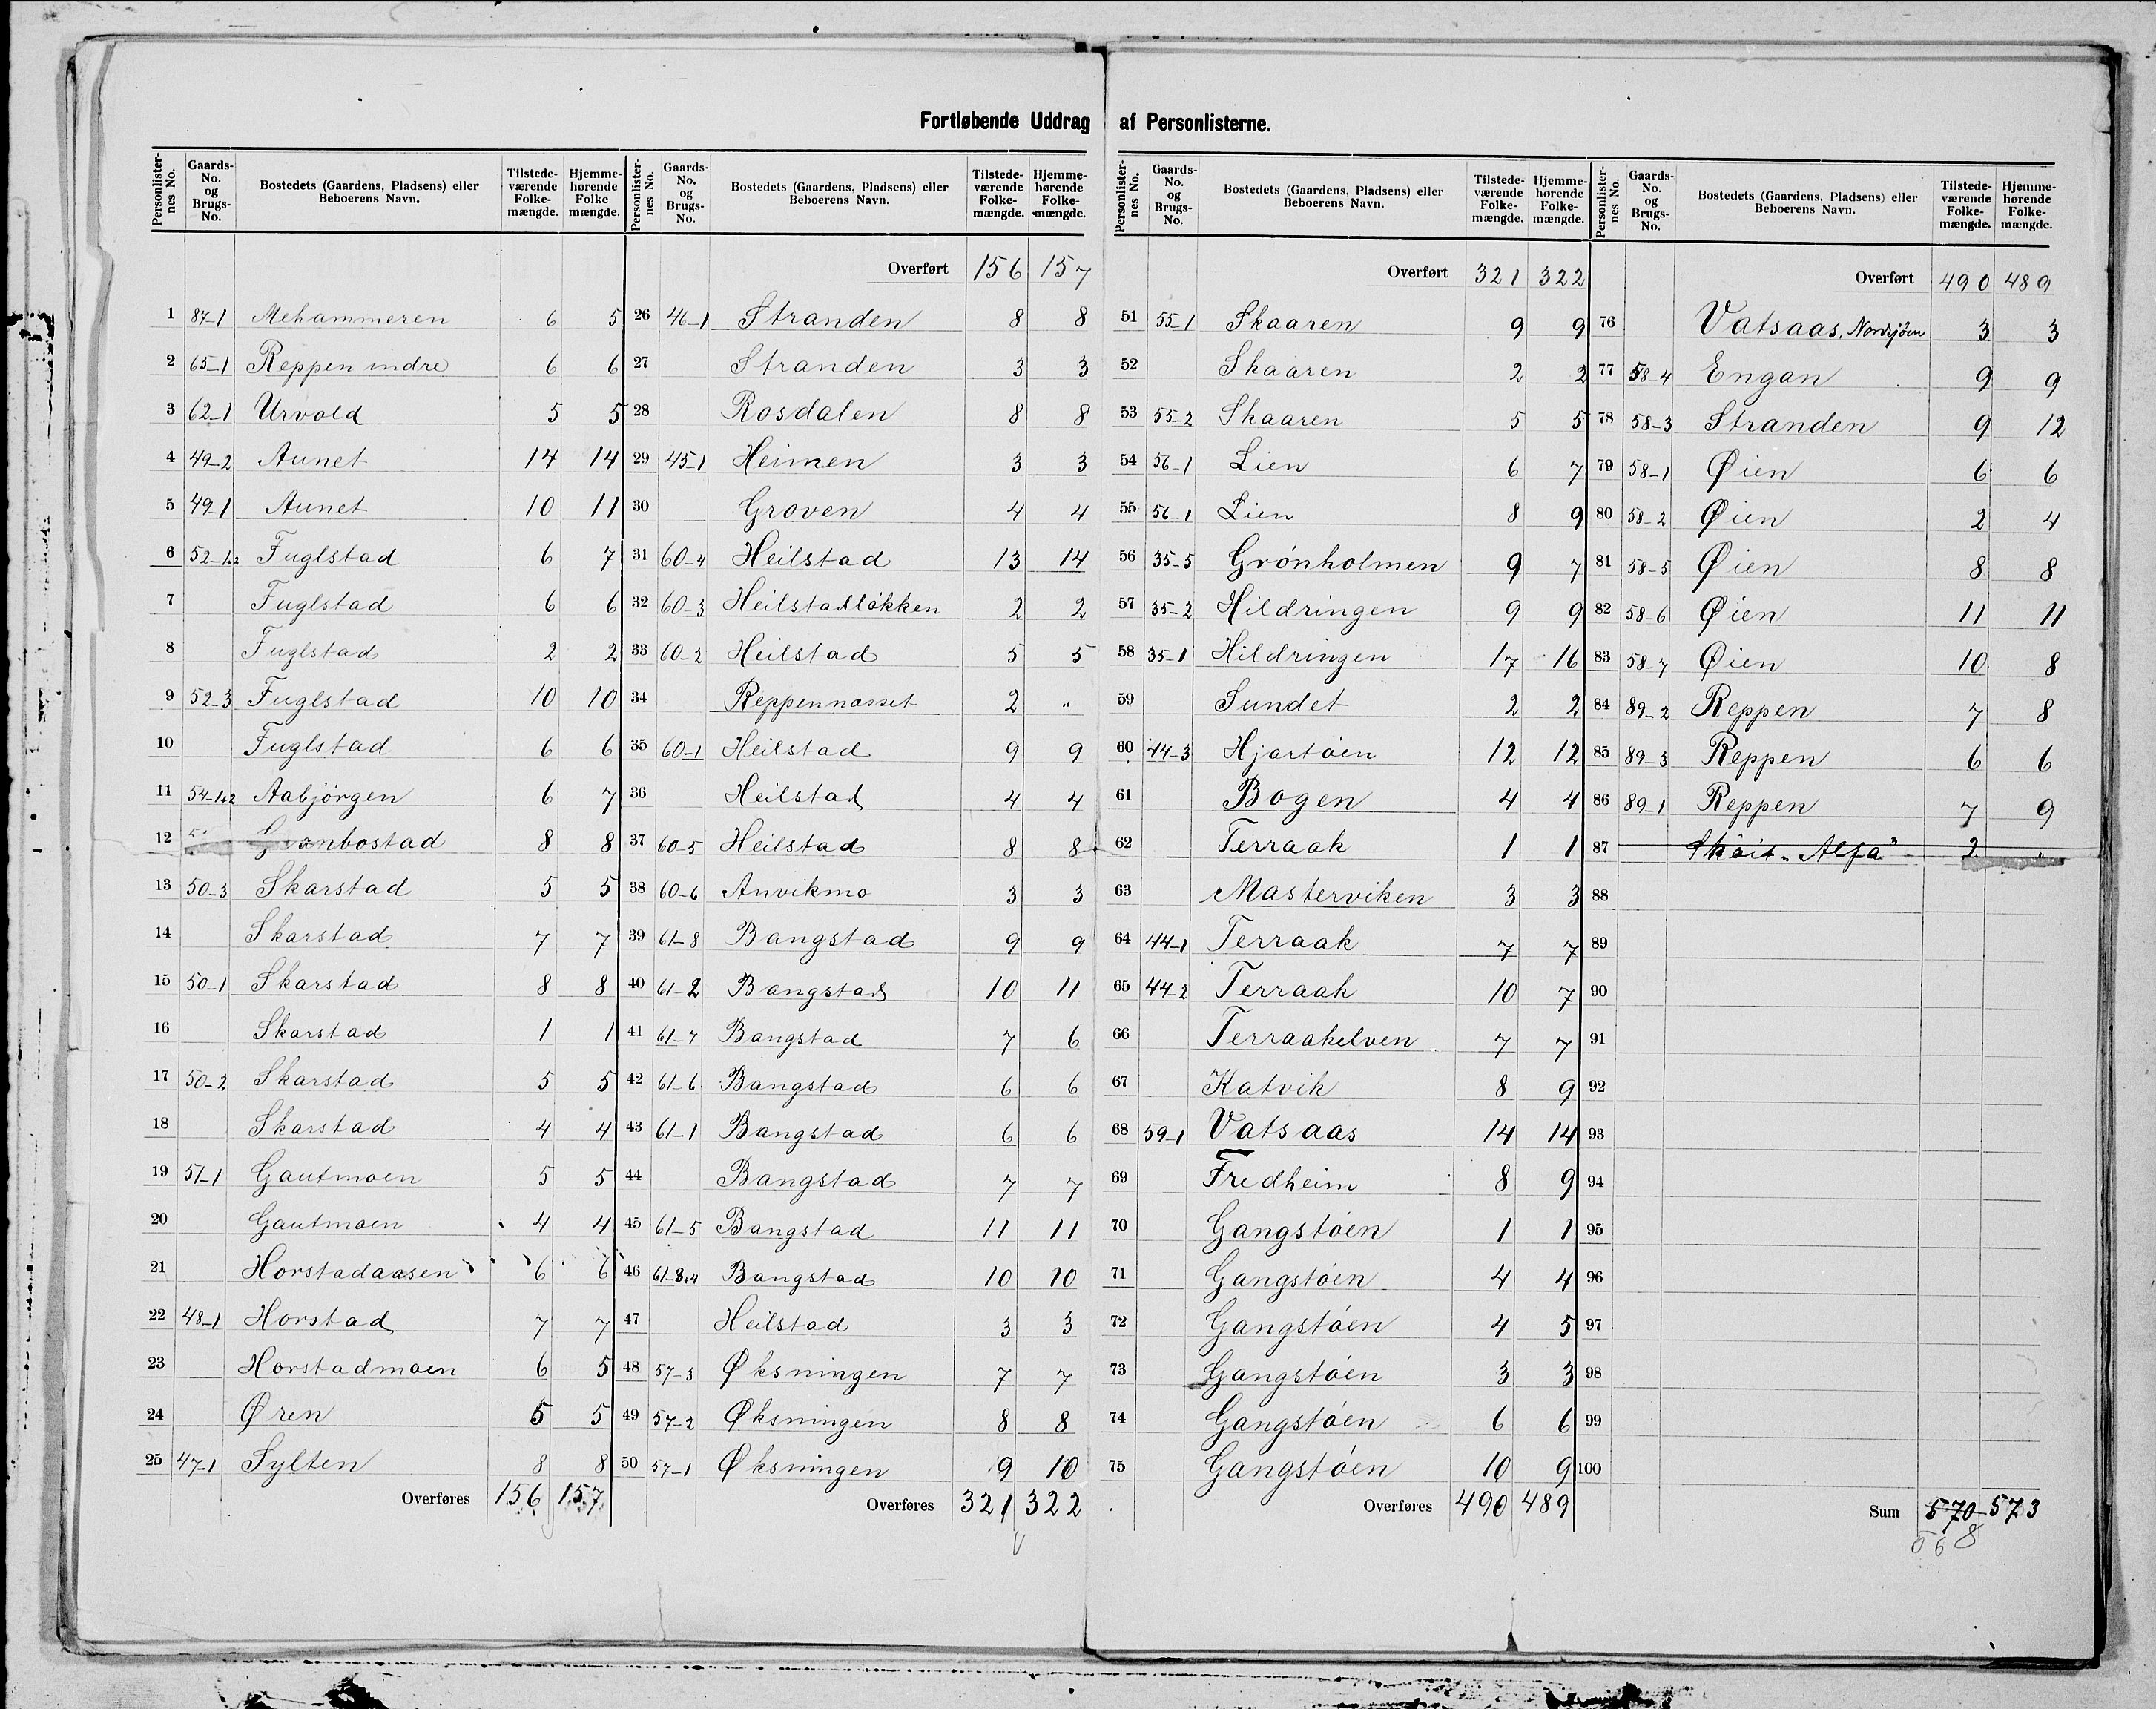 Fortløbende Uddrag af Personlisterne.
Personlister-nes No. Gaards-No. og Brugs-No. Bostedets (Gaardens, Pladsens) eller Beboerens Navn. Tilstede-værende Folke-mængde. Hjemme-hørende Folke mængde.
1 87-1 Mehammeren 6 5
2 65-1 Reppen indre 6 6
3 62-1 Urvold 5 5
4 49-2 Aunet 14 14
5 49-1 Aunet 10 11
6 52-1.2 Fuglstad 6 7
7 Fuglstad 6 6
8 Fuglstad 2 2
9 52-3 Fuglstad 10 10
10 Fuglstad 6 6
11 54-1.2 Aabjörgen 6 7
12 Granbostad 8 8
13 50-3 Skarstad 5 5
14 Skarstad 7 7
15 50-1 Skarstad 8 8
16 Skarstad 1 1
17 50-2 Skarstad 5 5
18 Skarstad 4 4
19 51-1 Gautmoen 5 5
20 Gautmoen 4 4
21 Horstadaasen 6 6
22 48-1 Horstad 7 7
23 Horstadmoen 6 5
24 Øren 5 5
25 47-1 Sylten 8 8
Overføres 156 157
Personlister-nes No. Gaards-No. og Brugs-No. Bostedets (Gaardens, Pladsens) eller Beboerens Navn. Tilstede-værende Folke-mængde. Hjemme-hørende Folke-mængde.
Overført 156 157
26 46-1 Stranden 8 8
27 Stranden 3 3
28 Rosdalen 8 8
29 45-1 Heimen 3 3
30 Groven 4 4
31 60-4 Heilstad 13 14
32 60-3 Heilstadløkken 2 2
33 60-2 Heilstad 5 5
34 Reppennæsset 2 "
35 60-1 Heilstad 9 9
36 Heilstad 4 4
37 60-5 Heilstad 8 8
38 60-6 Anvikmo 3 3
39 61-8 Bangstad 9 9
40 61-2 Bangstad 10 11
41 61-7 Bangstad 7 6
42 61-6 Bangstad 6 6
43 61-1 Bangstad 6 6
44 Bangstad 7 7
45 61-5 Bangstad 11 11
46 61-3.4 Bangstad 10 10
47 Heilstad 3 3
48 57-3 Øksningen 7 7
49 57-2 Øksningen 8 8
50 57-1 Øksningen 9 10
Overføres 321 322
Personlister-nes No. Gaards-No. og Brugs-No. Bostedets (Gaardens, Pladsens) eller Beboerens Navn. Tilstede-værende Folke-mængde. Hjemme-hørende Folke-mængde.
Overført 321 322
51 55-1 Skaaren 9 9
52 Skaaren 2 2
53 55-2 Skaaren 5 5
54 56-1 Lien 6 7
55 56-1 Lien 8 9
56 35-5 Grönholmen 9 7
57 35-2 Hildringen 9 9
58 35-1 Hildringen 17 16
59 Sundet 2 2
60 44-3 Hjartöen 12 12
61 Bogen 4 4
62 Terraak 1 1
63 Masterviken 3 3
64 44-1 Terraak 7 7
65 44-2 Terraak 10 7
66 Terraakelven 7 7
67 Katvik 8 9
68 59-1 Vatsaas 14 14
69 Fredheim 8 9
70 Gangstöen 1 1
71 Gangstöen 4 4
72 Gangstöen 4 5
73 Gangstöen 3 3
74 Gangstöen 6 6
75 Gangstöen 10 9
Overføres 490 489
Personlister-nes No. Gaards-No. og Brugs-No. Bostedets (Gaardens, Pladsens) eller Beboerens Navn. Tilstede-værende Folke-mængde. Hjemme-hørende Folke-mængde.
Overført 490 489
76 Vatsaas, Nordsjöen 3 3
77 58-4 Engan 9 9
78 58-3 Stranden 9 12
79 58-1 Øien 6 6
80 58-2 Øien 2 4
81 58-5 Øien 8 8
82 58-6 Øien 11 11
83 58-7 Øien 10 8
84 89-2 Reppen 7 8
85 89-3 Reppen 6 6
86 89-1 Reppen 7 9
87 Sköit „Alfa" 2 "
88
89
90
91
92
93
94
95
96
97
98
99
100
Sum 570 573
568